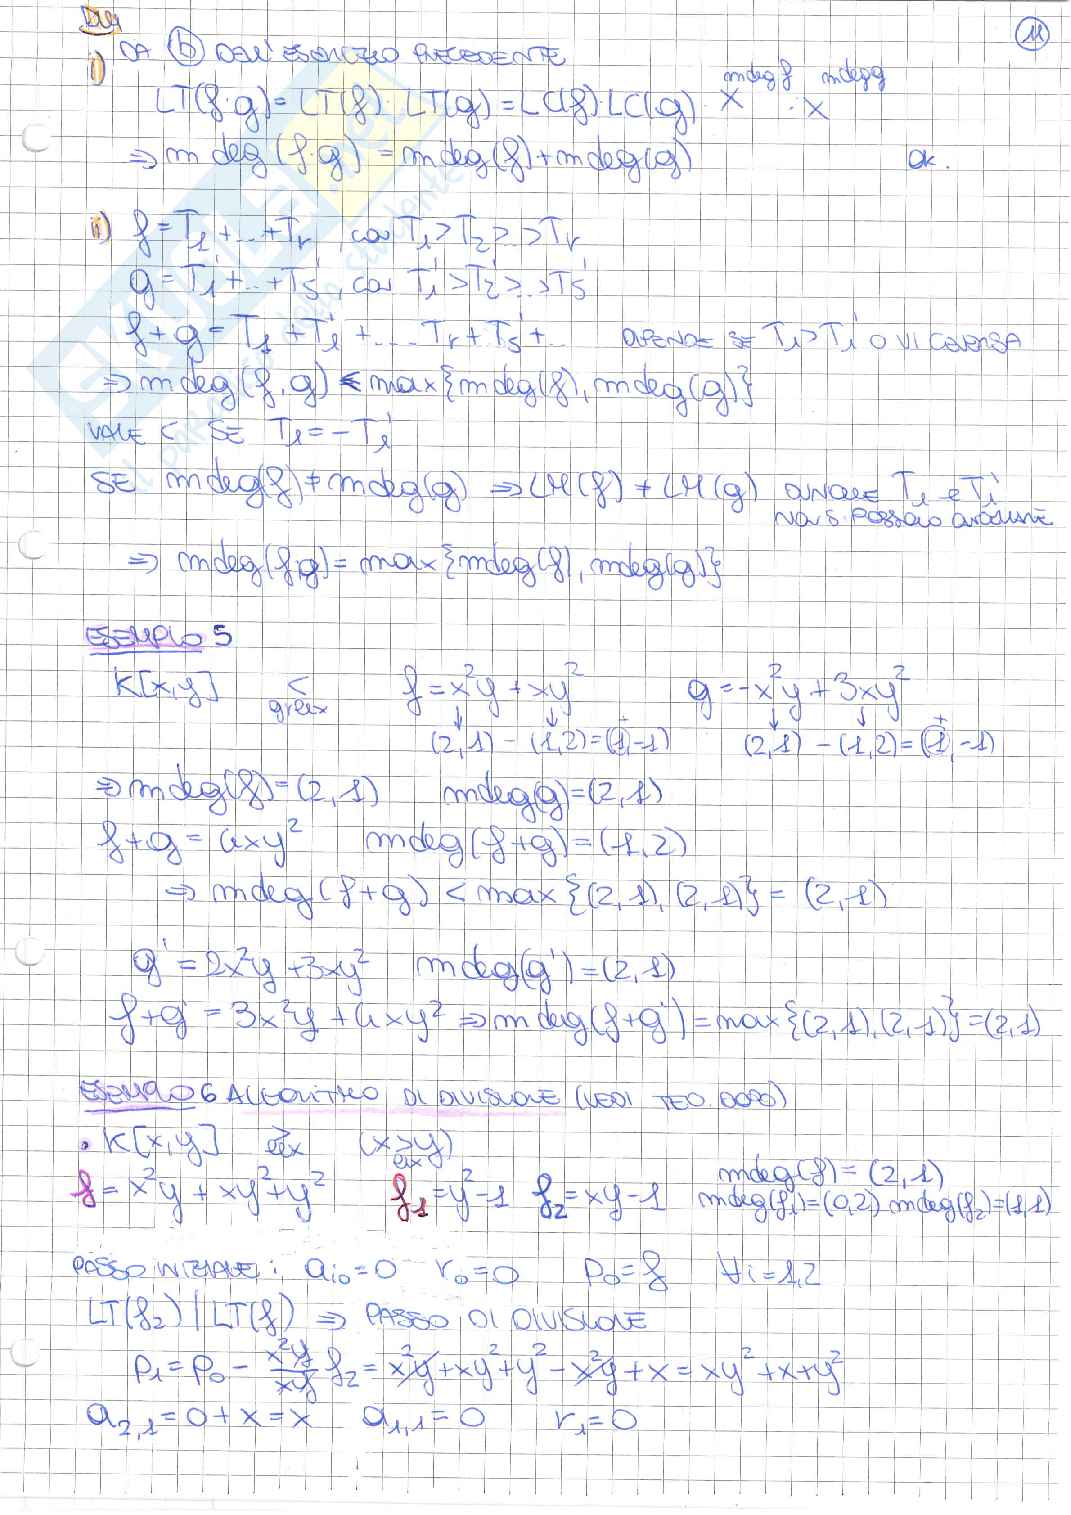 DIM
11
i) DA b DELL'ESERCIZIO PRECEDENTE
LT(f·g) = LT(f)·LT(g) = LC(f)·LC(g)·x^{mdeg f}·x^{mdeg g}
⇒ mdeg(f·g) = mdeg(f) + mdeg(g) OK.
ii) f = T₁ + ... + Tᵣ, con T₁ > T₂ > ... > Tᵣ
g = T₁' + ... + Tₛ', con T₁' > T₂' > ... > Tₛ'
f + g = T₁ + T₁' + .... Tᵣ + Tₛ' + ... DIPENDE SE T₁ > T₁' O VICEVERSA
⇒ mdeg(f,g) ≤ max{mdeg(f), mdeg(g)}
VALE < SE T₁ = -T₁'
SE mdeg(f) ≠ mdeg(g) ⇒ LM(f) ≠ LM(g) T₁ e T₁'
NON S. POSSONO
⇒ mdeg(f,g) = max{mdeg(f), mdeg(g)}
ESEMPIO 5
K[x,y] <_{grlex} f = x²y + xy² g = -x²y + 3xy²
↓ ↓ ↓ ↓
(2,1) - (1,2) = (1⁺,-1) (2,1) - (1,2) = (1⁺,-1)
⇒ mdeg(f) = (2,1) mdeg(g) = (2,1)
f + g = 4xy² mdeg(f+g) = (1,2)
⇒ mdeg(f+g) < max{(2,1), (2,1)} = (2,1)
g' = 2x²y + 3xy² mdeg(g') = (2,1)
f + g' = 3x²y + 4xy² ⇒ mdeg(f+g') = max{(2,1), (2,1)} = (2,1)
ESEMPIO 6 ALGORITMO DI DIVISIONE (VEDI TEO. DOPO)
• K[x,y] >_{lex} (x >_{lex} y)
mdeg(f) = (2,1)
f = x²y + xy² + y² f₁ = y² - 1 f₂ = xy - 1 mdeg(f₁) = (0,2) mdeg(f₂) = (1,1)
PASSO INIZIALE: a_{i0} = 0 r₀ = 0 p₀ = f ∀i = 1,2
LT(f₂) | LT(f) ⇒ PASSO DI DIVISIONE
p₁ = p₀ - x²y/xy f₂ = x²y + xy² + y² - x²y + x = xy² + x + y²
a_{2,1} = 0 + x = x a_{1,1} = 0 r₁ = 0